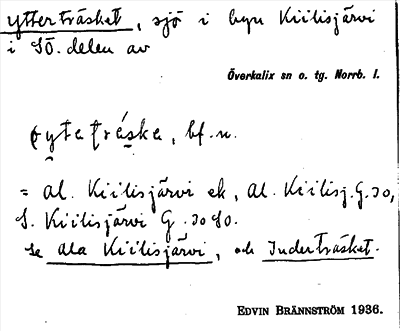 ytterträsket, sjö i byn Kiilisjärvi
i SÖ. delen av
Överkalix sn o. tg. Norrb. l.
ytetráska, bf. n.
= Al. Kiilisjärvi ek, Al. Kiilisj. G. 30,
S. Kiilisjärvi G. 30 SO.
se Ala Kiilisjärvi, och Inderträsket.
EDVIN BRÄNNSTRÖM 1936.